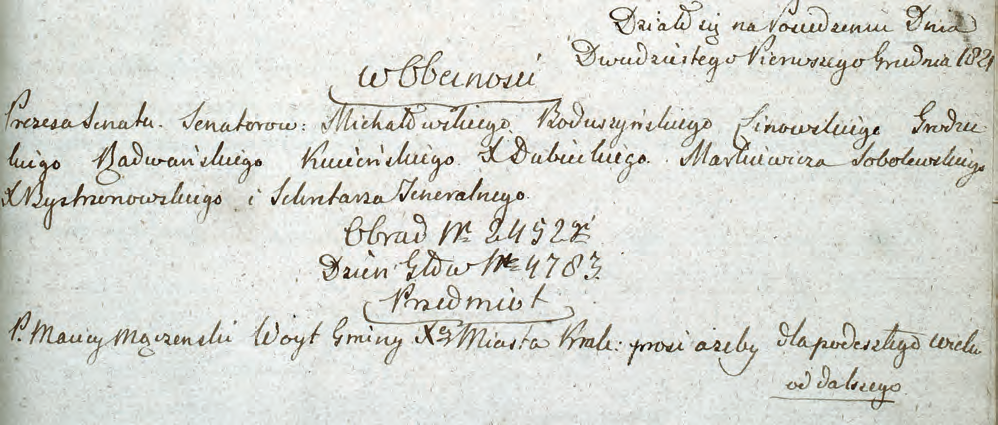 Działo się na Posiedzeniu Dnia
Dwudziestego Pierwszego Grudnia 1821
w Obecności
Prezesa Senatu. Senatorow: Michałowskiego. Roduszyńskiego Linowskiego Grodzic
kiego Badwańskiego Kucieńskiego. X Dubieckiego. Markiewicza Sobolewskiego
X Bystrzonowskiego i Sekretarza Jeneralnego.
Obrad Nr 2452
Dzień: Głów Nr 4783
Przedmiot
P. Maciey Mączenski Woyt Gminy Xey Miasta Krak: prosi ażeby dla podeszłego wieku
od dalszego